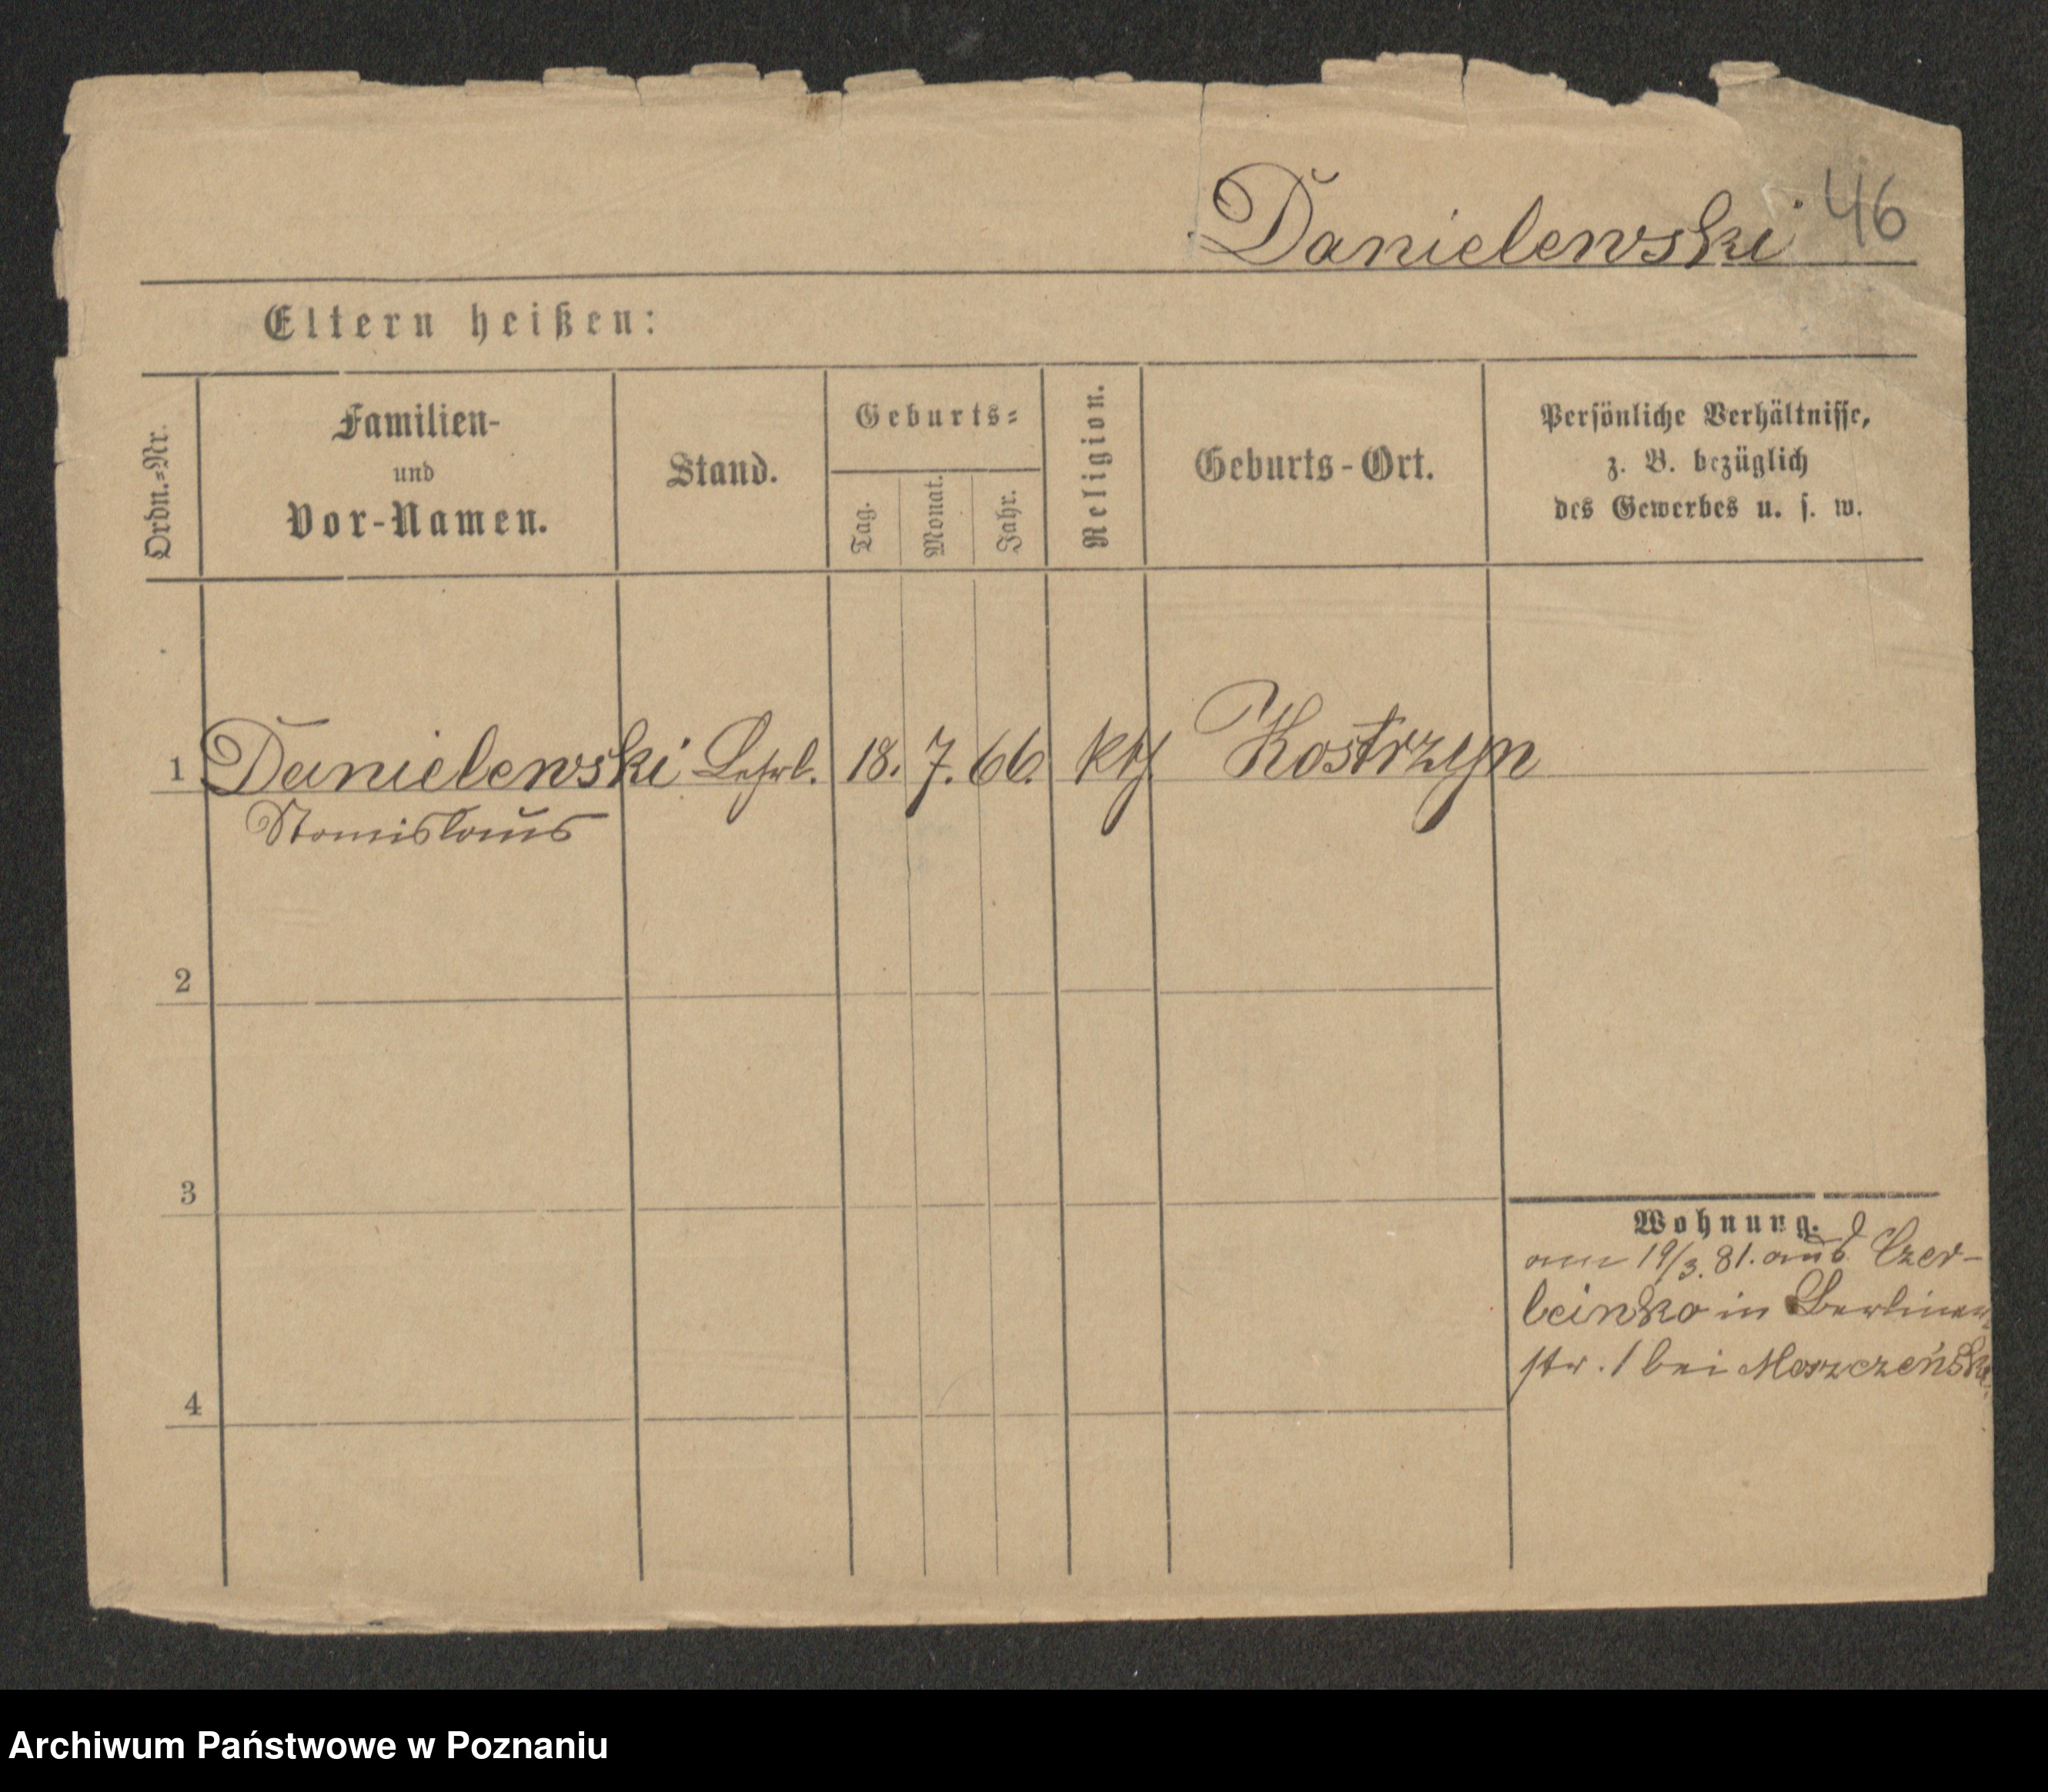 Danielewski 46
Eltern heißen:
Ordn.-Nr.
Familien-
und
Vor-Namen.
Stand.
Geburts-
Tag.
Monat.
Jahr.
Religion.
Geburts-Ort.
Persönliche Verhältnisse,
z. B. bezüglich
des Gewerbes u. s. w.
1 Danielewski Lehrl. 18. 7. 66. kth. Kostrzyn
Stanislaus
2
3
4
Wohnung.
am 19/3. 81. aus Czer-
leinko in Berliner-
str. 1 bei
Archiwum Państwowe w Poznaniu